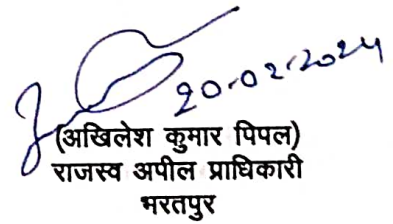 20-02-2024
(अखिलेश कुमार पिपल)
राजस्व अपील प्राधिकारी
भरतपुर